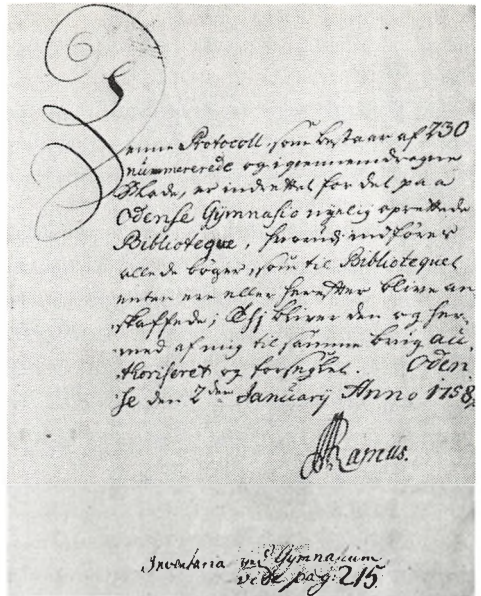 Denne Protocoll, som bestaar af 230
nummererede og igiennemdragne
Blade, er indrettet for det paa
Odense Gymnasio nyelig oprettede
Biblioteque, hvorudi indføres
alle de bøger, som til Bibliotequet
enten ere eller herefter blive an
skaffede; Thj bliver den og her-
med af mig til samme brug au,
thoriseret og forseglet. Oden
se den 2den Januarij Anno 1758.
Ramus.
Inventaria Gymnasium
vide pag: 215